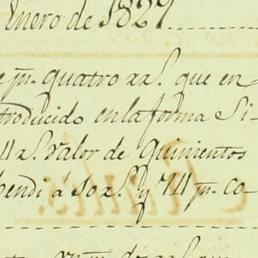 Enero de 1829
e pr. quatro rs. que en
troducido en la forma Si-
4 rs. valor de Quinientos
endi á 50 rs. y 74 pr. co-